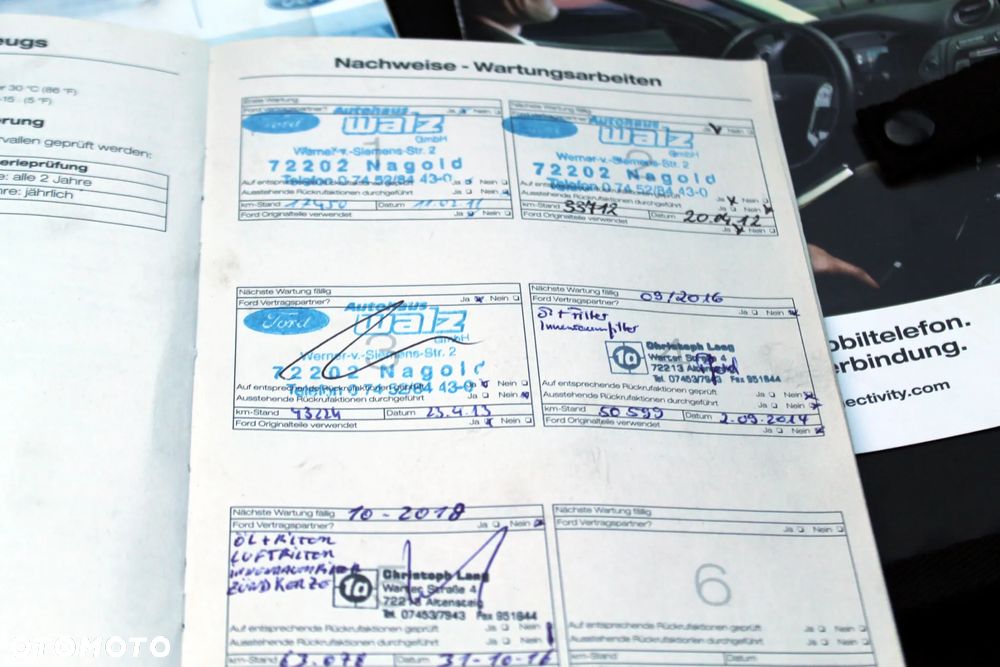 eugs
er 30 °C (86 °F)
-15 (5 °F).
erung
rvallen geprüft werden:
erieprüfung
e: alle 2 Jahre
hre: jährlich
Nachweise - Wartungsarbeiten
Erste Wartung
Ford Vertragspartner? Ja Nein
Ford
Autohaus
Walz
GmbH
Werner-v.-Siemens-Str. 2
72202 Nagold
Telefon 0 74 52/84 43-0
Auf entsprechende Rückrufaktionen geprüft Ja Nein
Ausstehende Rückrufaktionen durchgeführt Ja Nein
km-Stand 17450 Datum 11.02.11
Ford Originalteile verwendet Ja Nein
Nächste Wartung fällig
Ja Nein
Autohaus
Walz
GmbH
Werner-v.-Siemens-Str. 2
72202 Nagold
Telefon 0 74 52/84 43-0
Auf
Ausstehende Rückrufaktionen durchgeführt Ja Nein
km-Stand 33712 Datum 20.04.12
Ford Originalteile verwendet Ja Nein
Nächste Wartung fällig
Ford Vertragspartner? Ja Nein
3
Ford
Autohaus
Walz
GmbH
Werner-v.-Siemens-Str. 2
72202 Nagold
Telefon 0 74 52/84 43-0
Auf entsprechende Rückrufaktionen geprüft Ja Nein
Ausstehende Rückrufaktionen durchgeführt Ja Nein
km-Stand 43224 Datum 23.4.13
Ford Originalteile verwendet Ja Nein
Nächste Wartung fällig 09/2016
Ford Vertragspartner? Ja Nein
Öl + Filter
Innenraumfilter
1a
Christoph Lang
Warter Straße 4
72213 Altensteig
Tel. 07453/7943 Fax 951844
Auf entsprechende Rückrufaktionen geprüft Ja Nein
Ausstehende Rückrufaktionen durchgeführt Ja Nein
km-Stand 50599 Datum 2.09.2014
Ford Originalteile verwendet Ja Nein
Nächste Wartung fällig 10-2018
Ford Vertragspartner? Ja Nein
ÖL+FILTER
LUFTFILTER
INNENRAUMFILTER
ZÜNDKERZE
1a
Christoph Lang
Warter Straße 4
72213 Altensteig
Tel. 07453/7943 Fax 951844
Auf entsprechende Rückrufaktionen geprüft Ja Nein
Ausstehende Rückrufaktionen durchgeführt Ja Nein
km-Stand 63.078 Datum 31-10-16
Nächste Wartung fällig
Ford Vertragspartner? Ja Nein
6
Auf entsprechende Rückrufaktionen geprüft Ja Nein
Ausstehende Rückrufaktionen durchgeführt Ja Nein
km-Stand Datum
obiltelefon.
erbindung.
ectivity.com
OTOMOTO